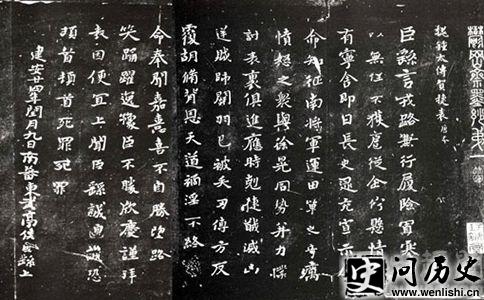 鬱岡齋墨妙第一
魏鍾太傅賀捷表 唐本
臣繇言戎路兼行履險冒寒
以無任不獲扈從企佇懸情
有寧舍即日長史逯充宣示
命知征南將軍運田單之奇厲
憤怒之衆與徐晃同勢并力撲
討表裏俱進應時剋捷馘滅凶
逆賊帥關羽已被矢刃傅方反
覆胡脩背恩天道禍淫不終
命奉聞嘉憙喜不自勝望路
笑踊躍逸豫臣不勝欣慶謹拜
表因便宜上聞臣繇誠惶誠恐
頓首頓首死罪死罪
建安廿四年閏月九日南蕃東武亭侯臣繇上
史问历史
www.wenlishi.cn